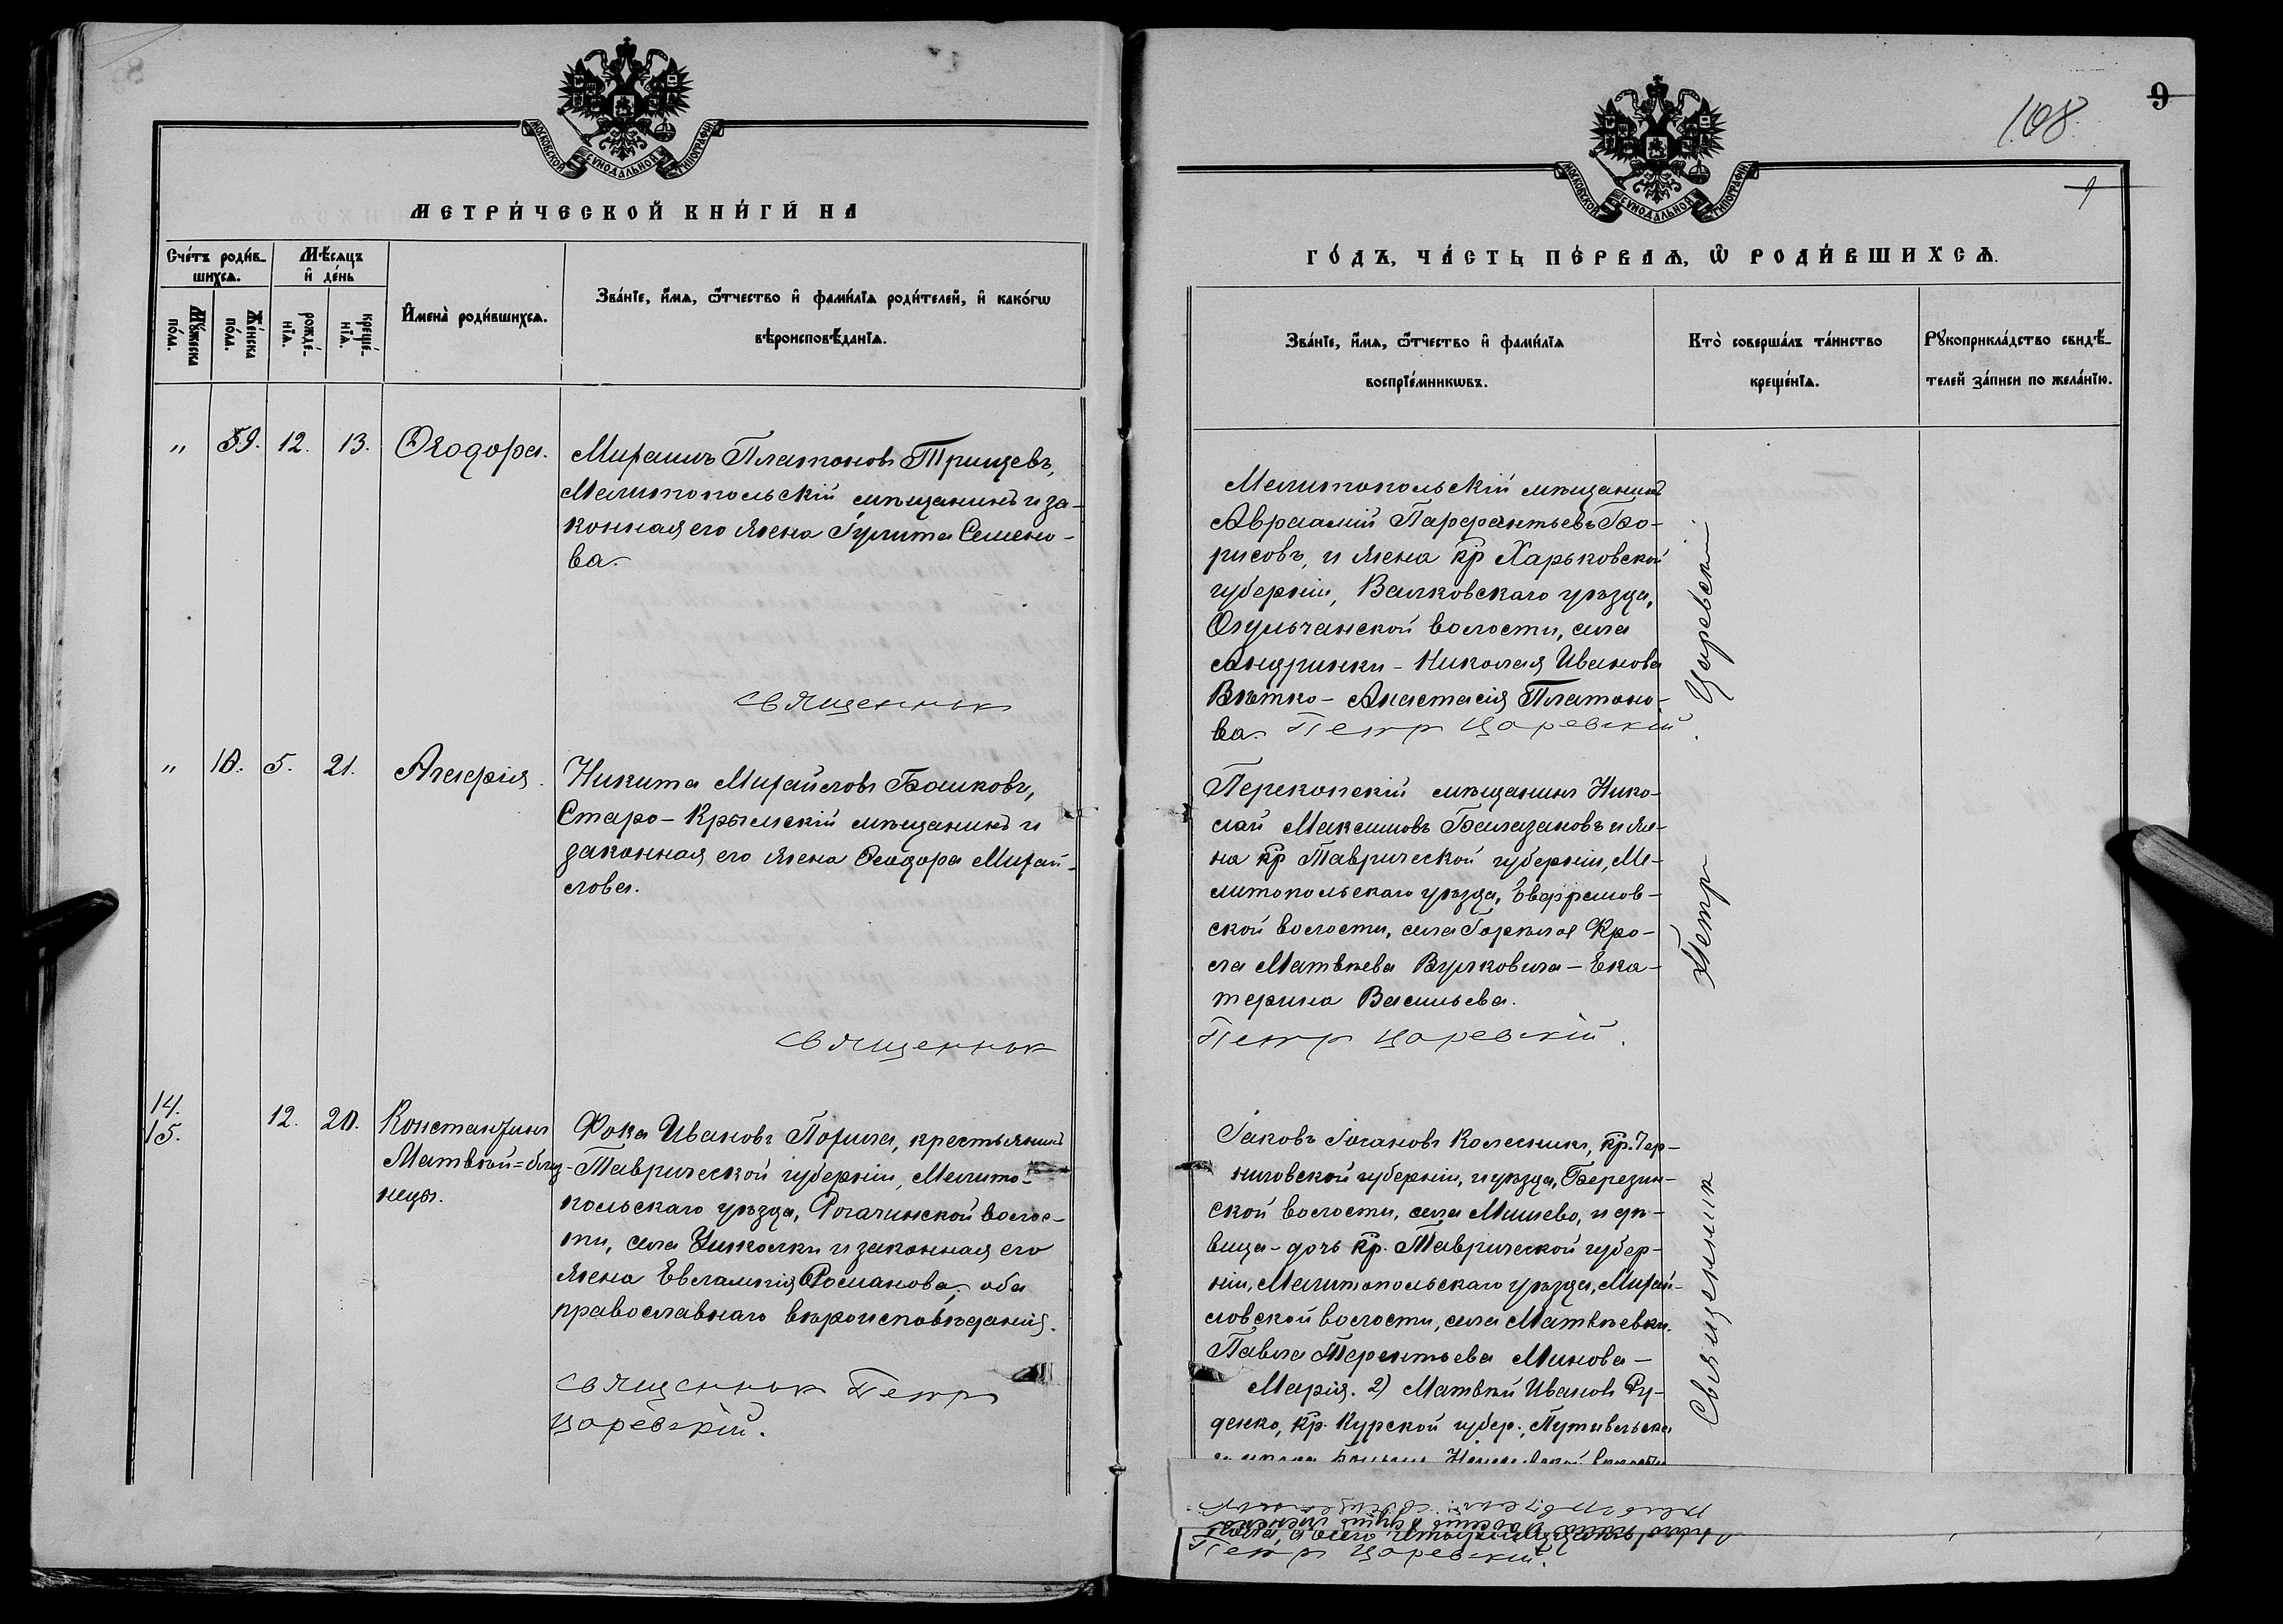 МОСКОВСКОЙ СѴНОДАЛЬНОЙ ТИПОГРАФІИ
МЕТРИ́ЧЕСКОЙ КНИ́ГИ НА
Сче́тъ роди́в-
шихсѧ.
Мѣ́сѧцъ
и҆ де́нь
Мꙋ́жеска
по́ла.
Же́нска
по́ла.
рожде́-
нїѧ.
креще́-
нїѧ.
И҆мена̀ роди́вшихсѧ.
Зва́нїе, и҆́мѧ, ѻ҆́тчество и҆ фами́лїѧ роди́телей, и҆ како́гѡ
вѣроисповѣ́данїѧ.
" 9. 12. 13. Ѳеодора.
Михаилъ Платоновъ Трищевъ,
Мелитопольскій мѣщанинъ и за-
конная его жена Іулита Семено-
ва.
Священник
" 10. 5. 21.
Никита Михайловъ Башковъ,
Старо-Крымскій мѣщанинъ и
законная его жена Ѳеодора Михай-
лова.
Священник
14.
15.
12. 20.
Константинъ
Матвѣй = близ-
нецы.
Фока Ивановъ Похила, крестьянинъ
Таврической губерніи, Мелито-
польскаго уѣзда, Рогачинской волос-
ти, села Ушкалки и законная его
жена Евлампія Романова, оба
православнаго вѣроисповѣданія.
Священник Петр
Царевскій.
108.
9
9
МОСКОВСКОЙ СѴНОДАЛЬНОЙ ТИПОГРАФІИ
ГО́ДЪ, ЧА́СТЬ ПЕ́РВАѦ, Ѡ҆ РОДИ́ВШИХСѦ.
Зва́нїе, и҆́мѧ, ѻ҆́тчество и҆ фами́лїѧ
воспрїе́мникѡвъ.
Кто̀ соверша́лъ та́инство
креще́нїѧ.
Рꙋкоприкла́дство свидѣ́-
телей за́писи по жела́нїю.
Мелитопольскій мѣщанинъ
Авраамій Парфентьевъ Бо-
рисовъ, и жена кр Харьковской
губерніи, Валковскаго уѣзда,
Огульчанской волости, села
Андринки - Николая Иванова
Вѣтко - Анастасія Платоно-
ва. Петр Царевскій
Перекопскій мѣщанинъ Нико-
лай Максимовъ и же-
на кр Таврической губерніи, Ме-
литопольскаго уѣзда,
ской волости, села Кро-
ла Матвѣева - Ека-
терина Васильева.
Петр Царевскій.
Іаковъ Іоанновъ Колесникъ, кр. Чер-
ниговской губерніи, и уѣзда, Березин-
ской волости, села и дѣ-
вица - дочь кр. Таврической губер-
ніи, Мелитопольскаго уѣзда, Михай-
ловской волости, села Матвѣевки
Павла Терентьева Минова -
Марія. 2) Матвѣй Иванов Ру-
денко, кр. Курской губер., Путивльска
Священник Петр Царевскій
Петр Царевскій.